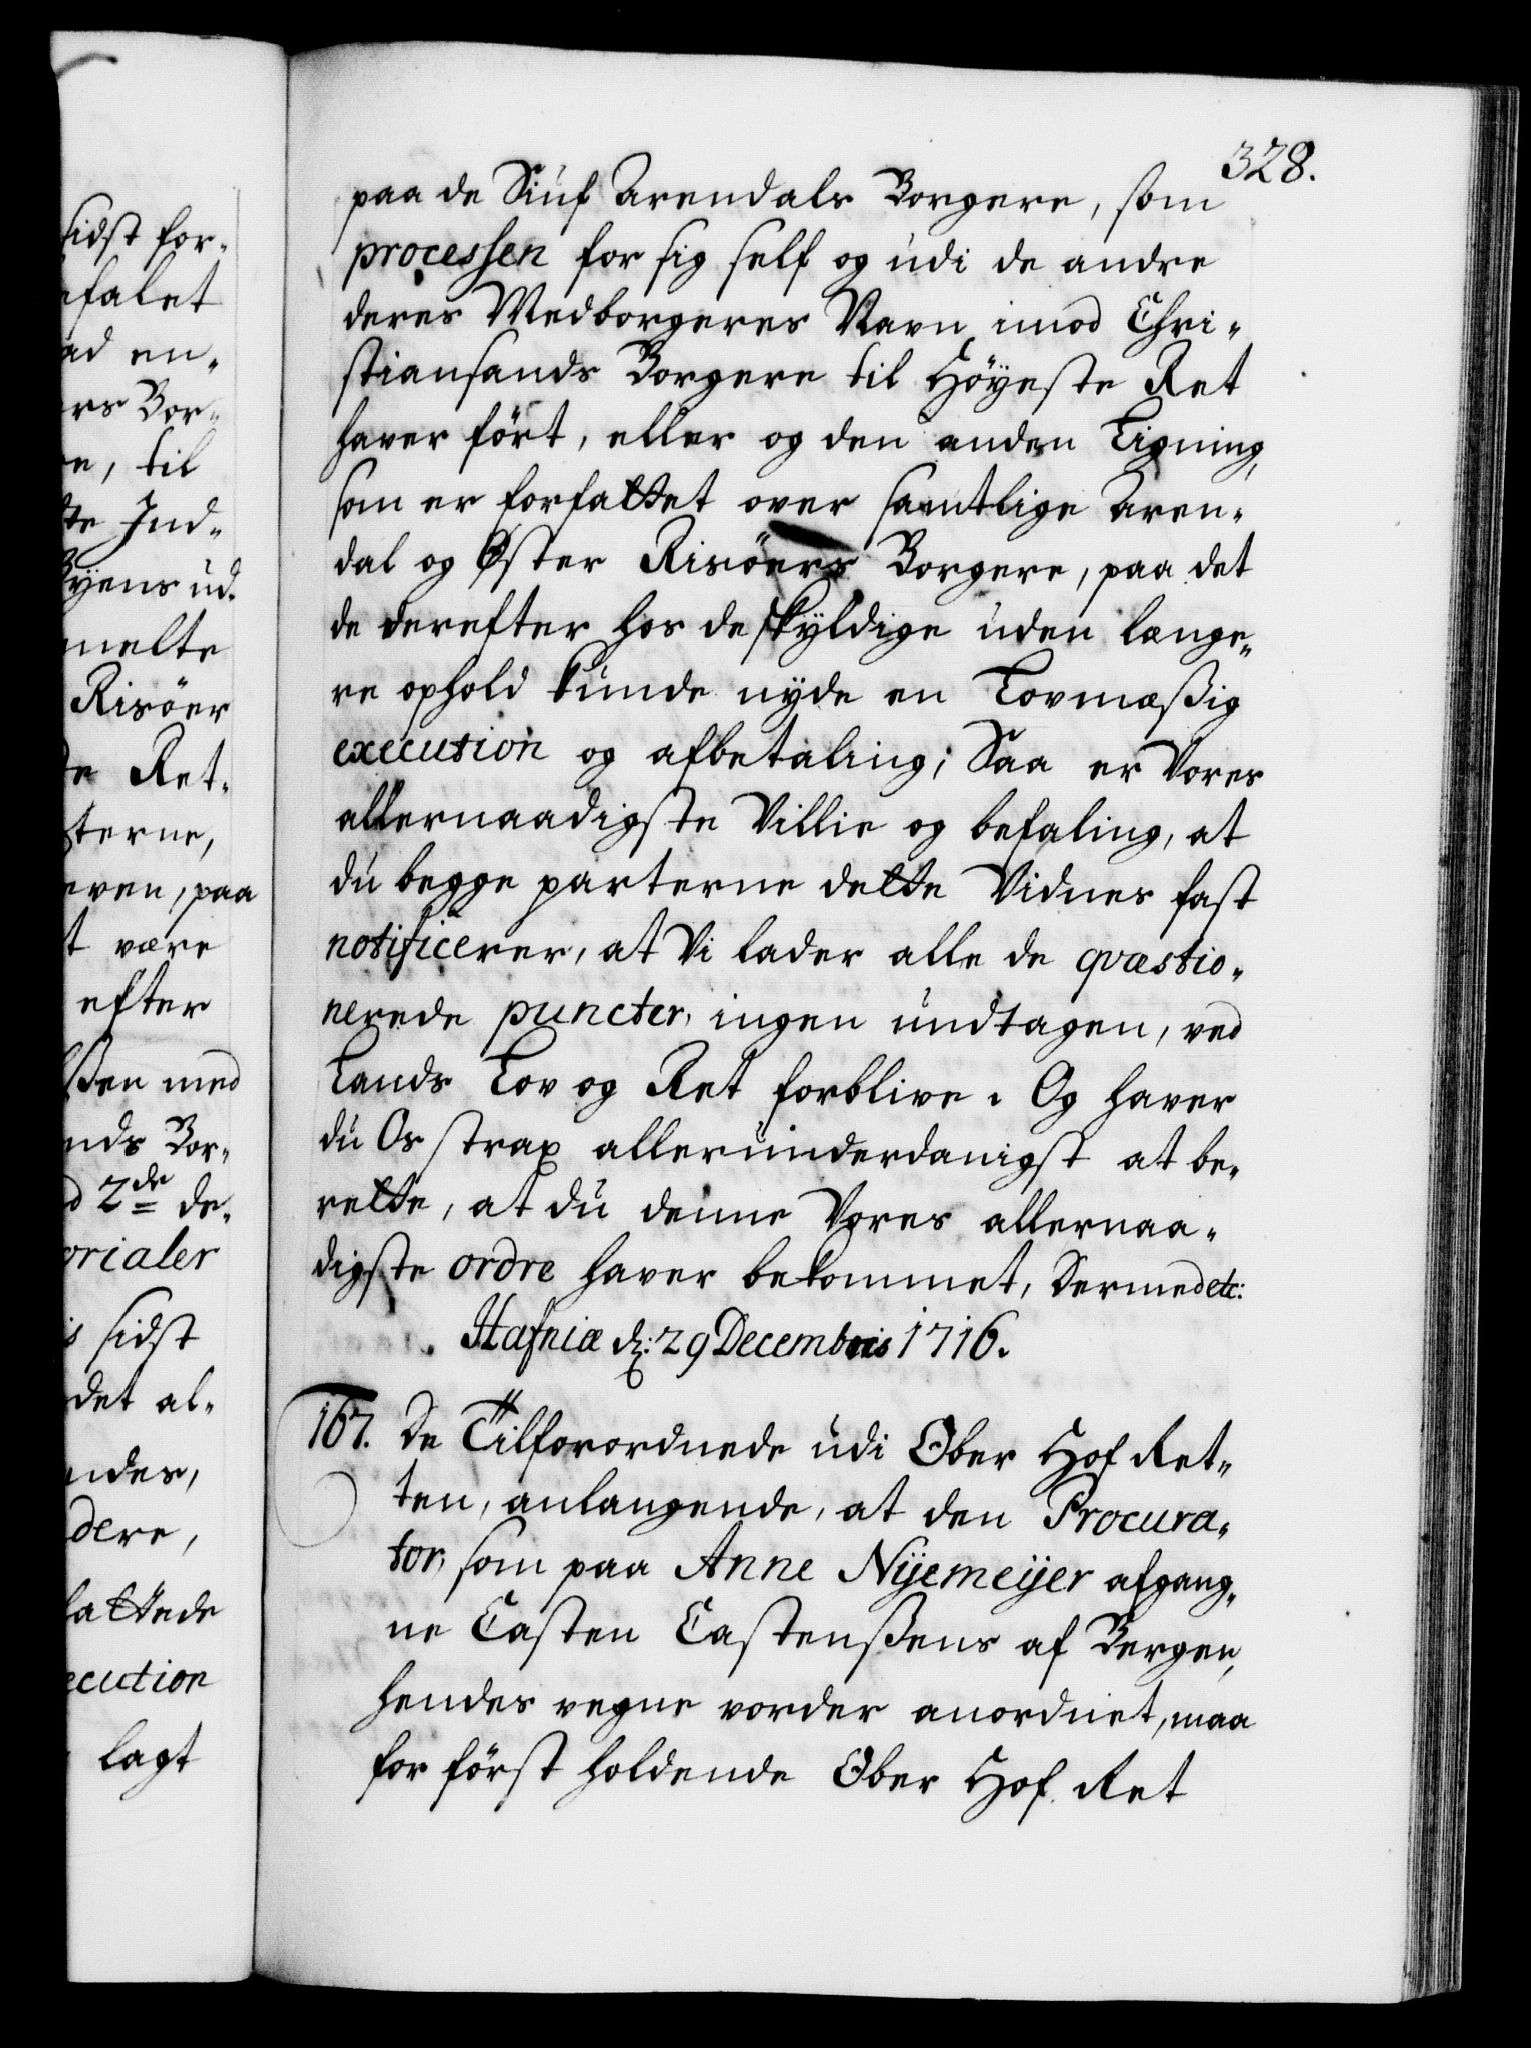 328.
paa de Siuf Arendals Borgere, som
processen for sig self og udi de andre
deres Medborgeres Navn imod Chri-
stiansands Borgere til Höyeste Ret
haver fört, eller og den anden Ligning,
som er forfattet over samtlige Aren-
dal og Öster Risöers Borgere, paa det
de derefter hos de skyldige uden længe-
re ophold kunde nyde en Lovmæßig
execution og afbetaling; Saa er Vores
allernaadigste Villie og befaling, at
du begge parterne dette Vidnes fast
notificerer, at Vi lader alle de qvæstio-
nerede puncter, ingen undtagen, ved
Lands Lov og Ret forblive. Og haver
du Os strax allerunderdanigst at be-
rette, at du denne Vores allernaa-
digste ordre haver bekommet, Dermed etc:
Hafniæ d: 29 Decembris 1716.
167. De Tilforordnede udi Ober Hof Ret-
ten, anlangende, at den Procura-
tor, som paa Anne Nÿemeÿer afgang-
ne Casten Castenßens af Bergen,
hendes vegne vorder anordnet, maa
for först holdende Ober Hof Ret
sidst for-
efalet
ad en-
ers Bor-
re, til
te Ind-
Byens ud-
melte
Risöer
de Ret-
terne,
even, paa
t være
efter
ßen med
nds Bor-
d 2de de-
orialer
is sidst
det al-
ndes,
dere,
fattede
ecution
lagt